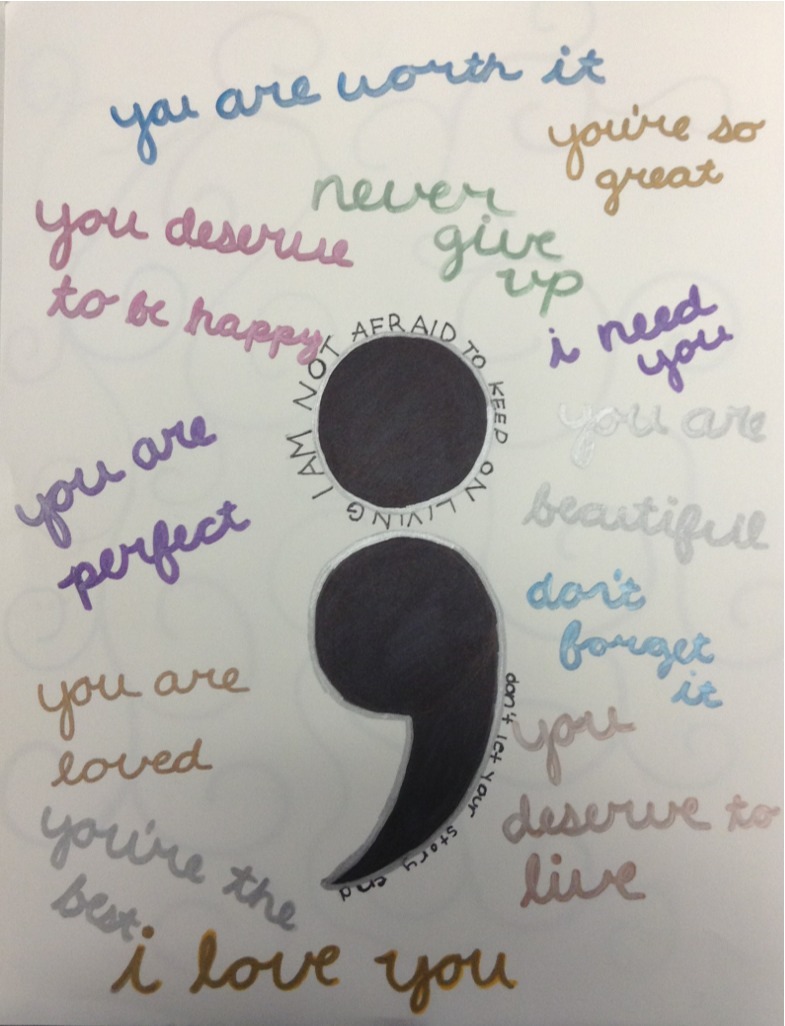 you are worth it
you're so
great
never
give
up
you deserve
to be happy
i need
you
I AM NOT AFRAID TO KEEP ON LIVING
you are
beautiful
you are
perfect
don't
forget
it
you are
loved
don't let your story end
you
deserve to
live
you're the
best
i love you